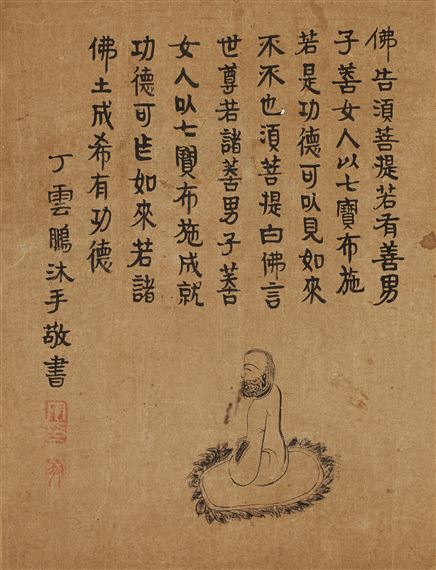 佛告須菩提若有善男
子善女人以七寶布施
若是功德可以見如來
不不也須菩提白佛言
世尊若諸善男子善
女人以七寶布施成就
功德可乍如來若諸
佛土成希有功德
丁雲鵬沐手敬書